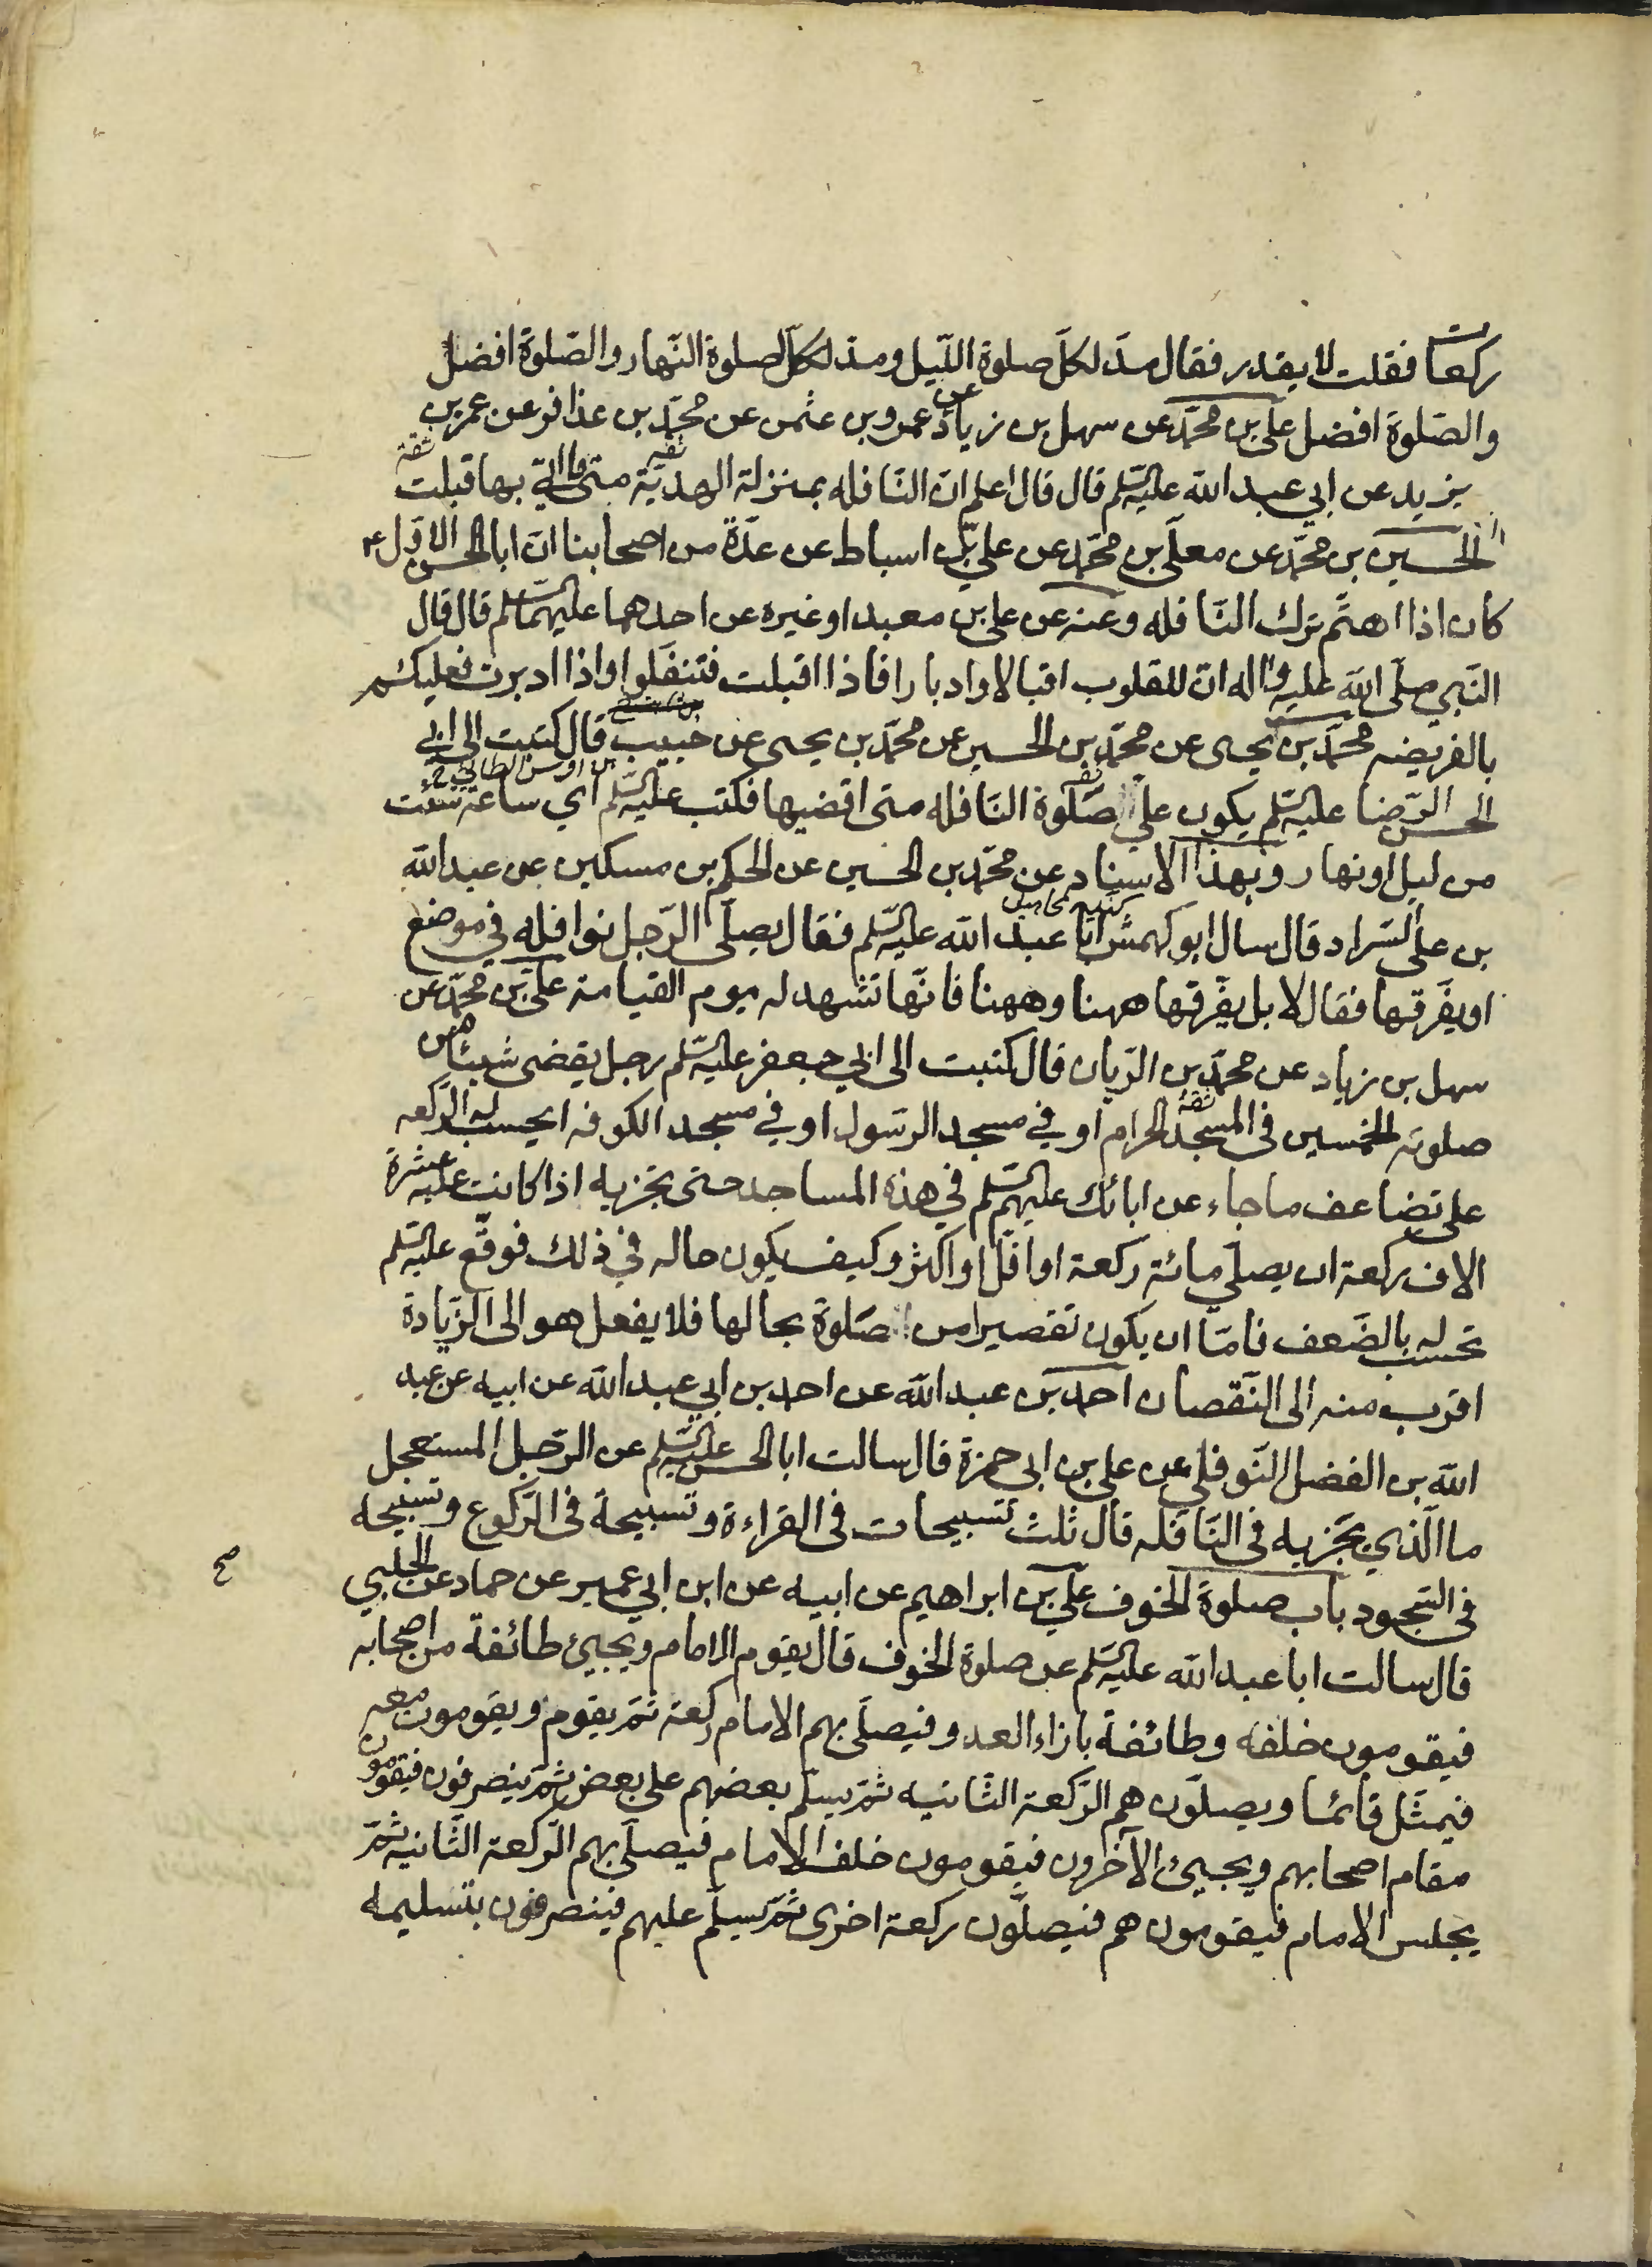 ركعات فقلت لا يقدر فقال مدّ لكلّ صلوة اللّيل ومدّ لكلّ صلوة النّهار والصّلوة افضل
والصّلوة افضل علي بن محمّد عن سهل بن زياد عن عمرو بن عثمن عن محمّد بن عذافر عن عمر بن
يزيد عن ابي عبد الله عليه السّلم قال قال اعلم انّ النّافله بمنزلة الهديّة متى ما اتي بها قبلت
الحسين بن محمّد عن معلّى بن محمّد عن علي بن اسباط عن عدّة من اصحابنا انّ ابا الحسن الاوّل ع
كان اذا اهتمّ ترك النّافله وعنه عن علي بن معبد او غيره عن احدهما عليهما السّلم قال قال
النّبي صلّى الله عليه واله انّ للقلوب اقبالا وادبارا فاذا اقبلت فتنفّلوا واذا ادبرت فعليكم
بالفريضه محمّد بن يحيى عن محمّد بن الحسين عن محمّد بن يحيى عن حبيب قال كتبت الى ابي
الحسن الرّضا عليه السّلم يكون علي صلوة النّافله متى اقضيها فكتب عليه السّلم اي ساعة شئت
من ليل او نهار وبهذا الاسناد عن محمّد بن الحسين عن الحكم بن مسكين عن عبد الله
بن علي السّراد قال سال ابو كهمش ابا عبد الله عليه السّلم فقال يصلّي الرّجل نوافله في موضع
او يفرّقها فقال لا بل يفرّقها ههنا وههنا فانّها تشهد له يوم القيامة علي بن محمّد عن
سهل بن زياد عن محمّد بن الرّيان قال كتبت الى ابي جعفر عليه السّلم رجل يقضى شيئا من
صلوته الخمسين في المسجد الحرام او في مسجد الرّسول او في مسجد الكوفه ايحسب له الرّكعه
على تضاعف ما جاء عن ابائك عليهم السّلم في هذه المساجد حتى تجزيه اذا كانت عليه عشرة
الاف ركعة ان يصلّي مائة ركعة او اقلّ او اكثر وكيف يكون حاله في ذلك فوقّع عليه السّلم
تحسب له بالضّعف فامّا ان يكون تقصيرا من الصّلوة بحالها فلا يفعل هو الى الزّيادة
اقرب منه الى النّقصان احمد بن عبد الله عن احمد بن ابي عبد الله عن ابيه عن عبد
الله بن الفضل النّوفلي عن علي بن ابي حمزة قال سالت ابا الحسن عليه السّلم عن الرّجل المستعجل
ما الّذي يجزيه في النّافله قال ثلث تسبيحات في القراءة وتسبيحة في الرّكوع وتسبيحه
في السّجود باب صلوة الخوف علي بن ابراهيم عن ابيه عن ابن ابي عمير عن حماد عن الحلبي
قال سالت ابا عبد الله عليه السّلم عن صلوة الخوف قال يقوم الامام ويجيئ طائفة من اصحابه
فيقومون خلفه وطائفة بازاء العدو فيصلّي بهم الامام ركعة ثمّ يقوم ويقومون معه
فيمثّل قائما ويصلّون هم الرّكعة الثّانيه ثمّ يسلّم بعضهم على بعض ثمّ ينصرفون فيقومون
مقام اصحابهم ويجيئ الآخرون فيقومون خلف الامام فيصلّي بهم الرّكعة الثّانيه ثمّ
يجلس الامام فيقومون هم فيصلّون ركعة اخرى ثمّ يسلّم عليهم فينصرفون بتسليمه